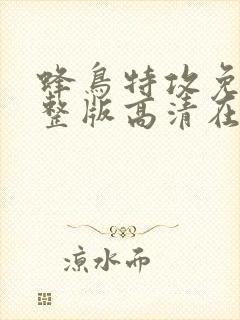 蜂鸟特攻免
整版高清在
凉水而